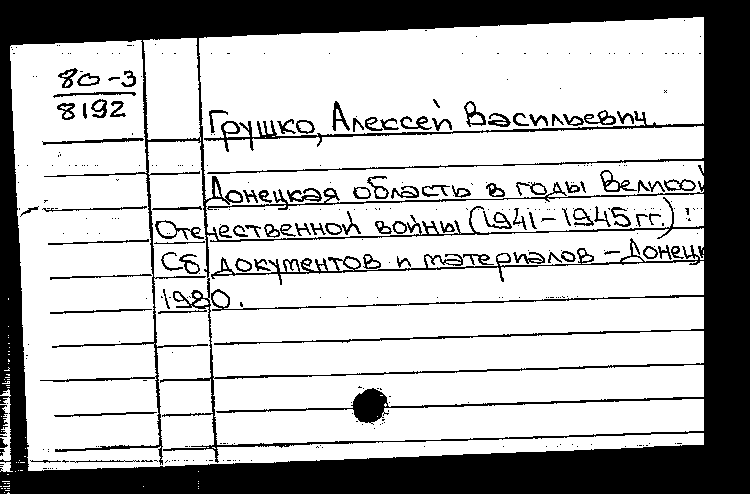 80-3
8192
Грушко, Алексей Васильевич.
Донецкая область в годы Великой
Отечественной войны (1941-1945гг.):
Сб. документов и материалов - Донецк
1980.